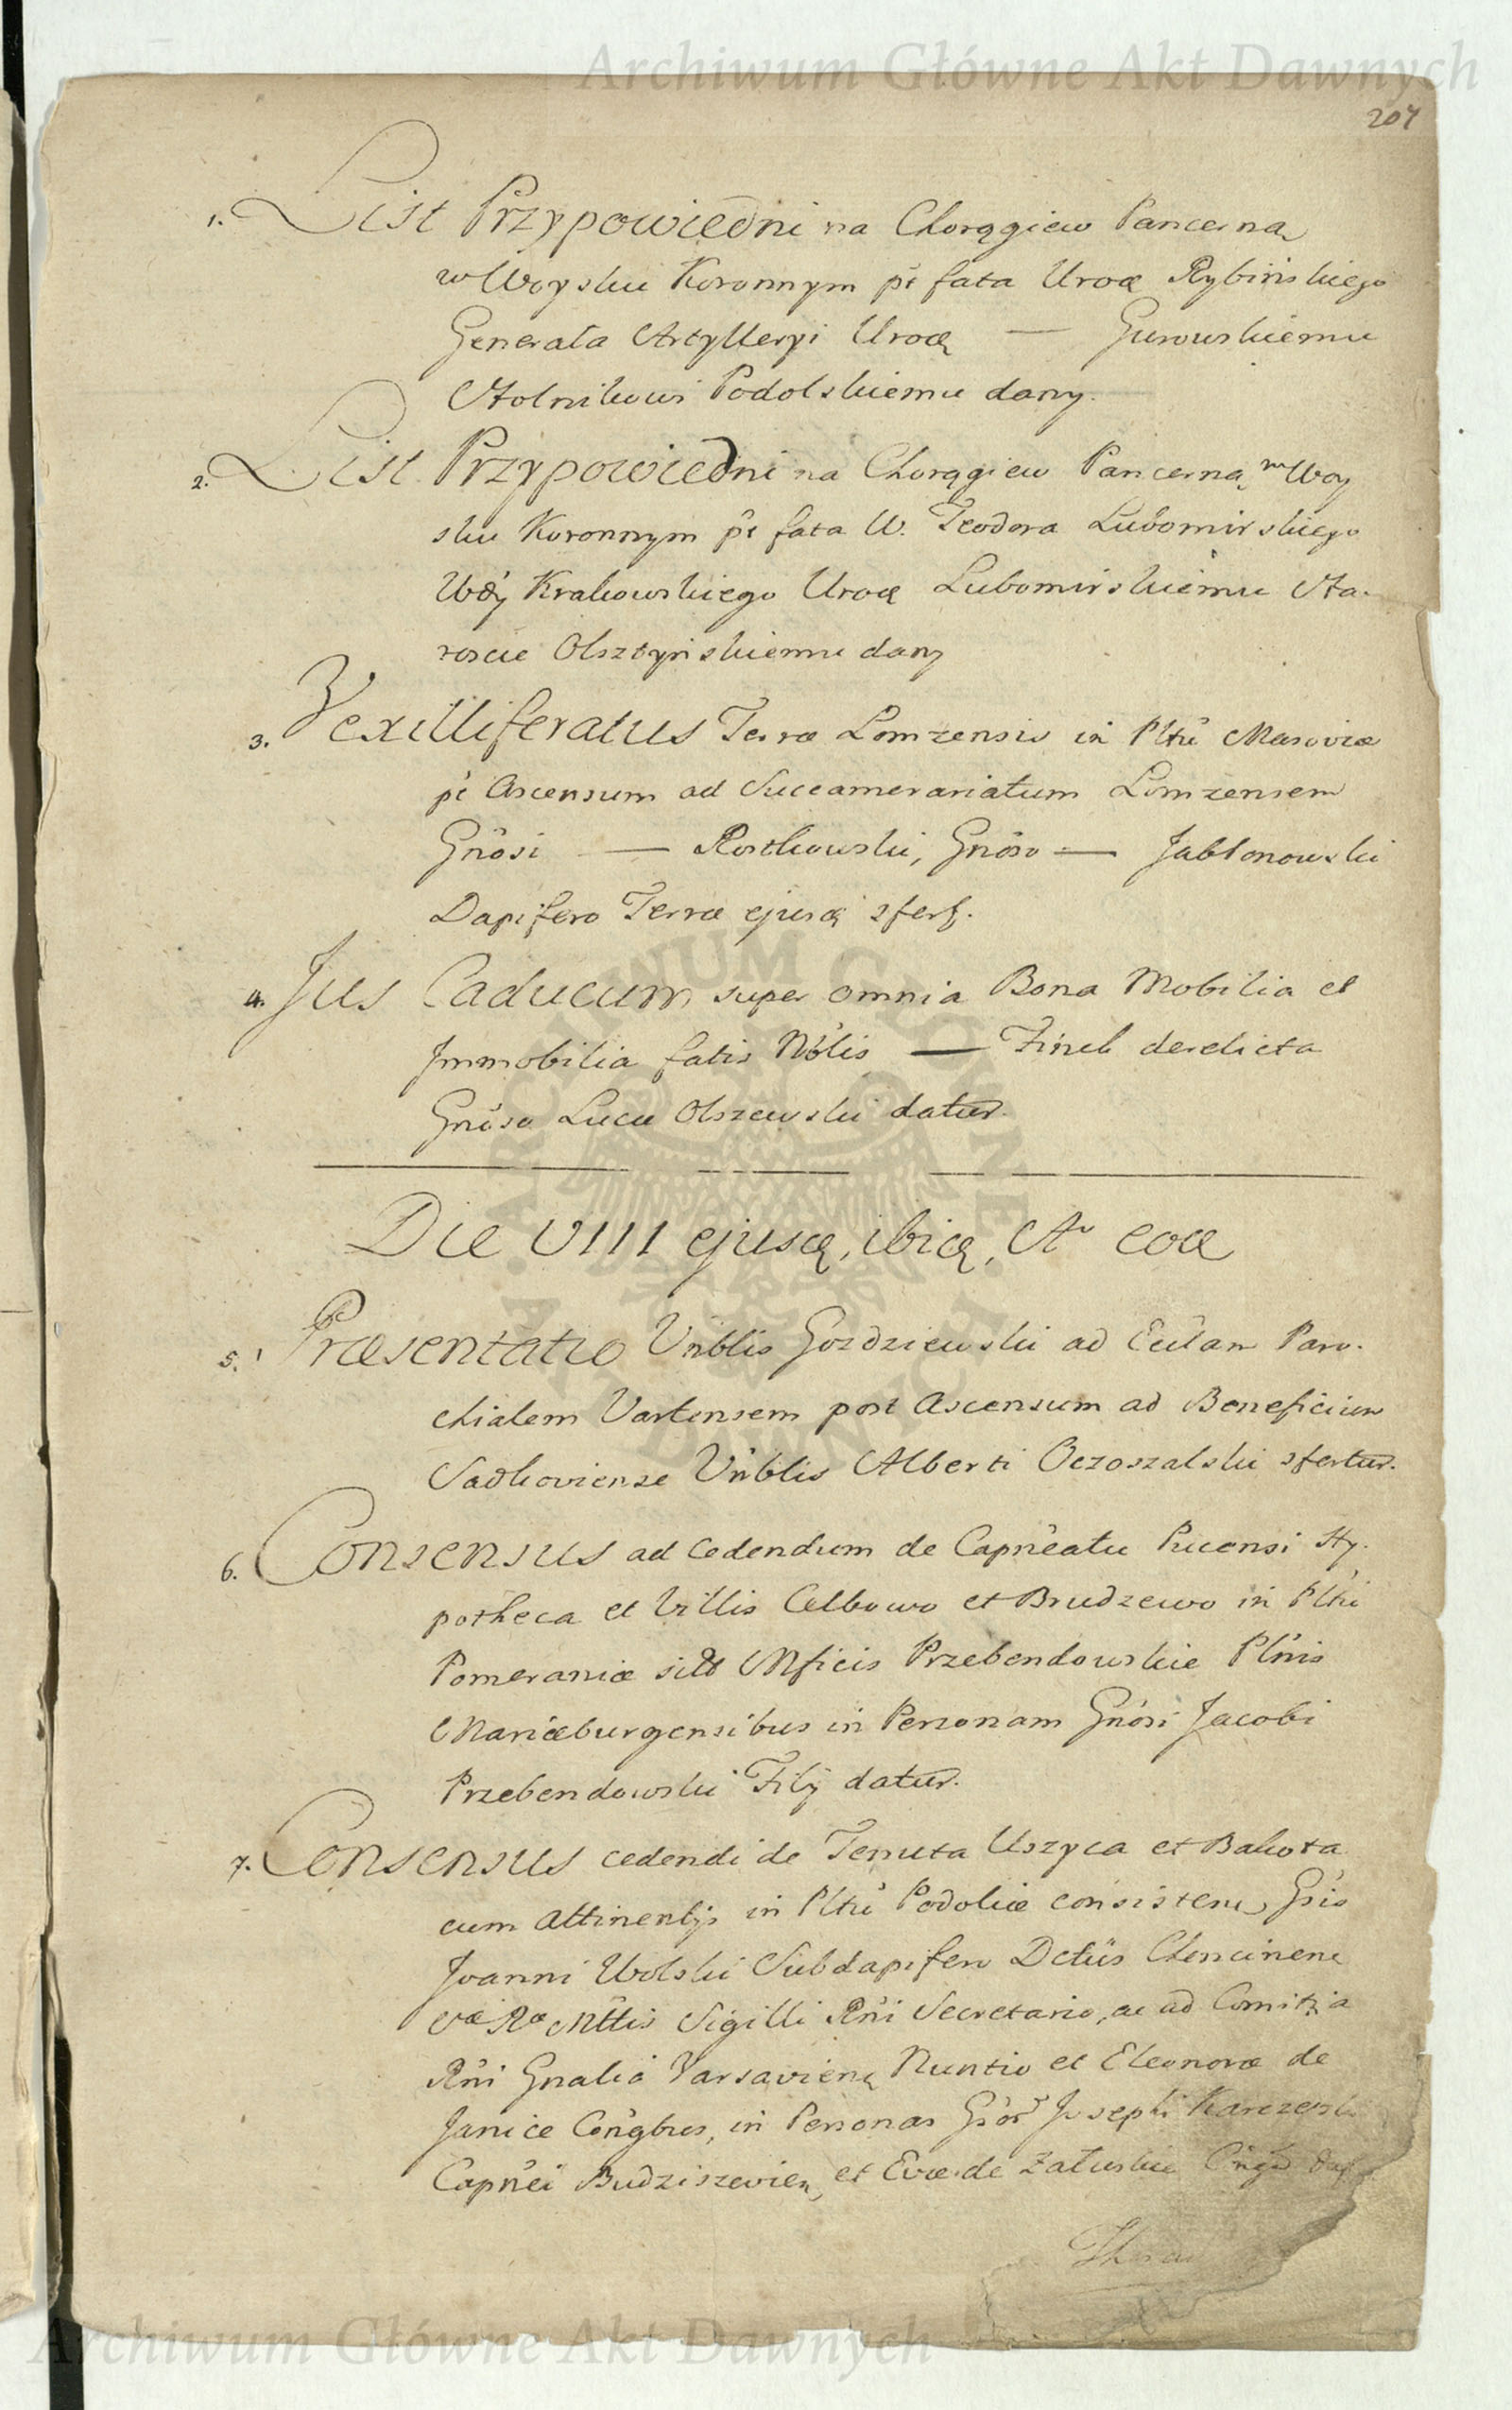 Archiwum Główne Akt Dawnych
207
1. List Przypowiedni na Chorągiew Pancerną
w Woysku Koronnym pt fata Uroæ Rybińskiego
Generała Artylleryi Uroę — Gurowskiemu
Stolnikowi Podolskiemu dany.
2. List Przypowiedni na Chorągiew Pancerną w Woy
sku Koronnym pt fata W. Teodora Lubomirskiego
Wdy Krakowskiego Uroæ Lubomirskiemu Sta-
roscie Olsztyńskiemu dany
3. Vexilliferatus Terræ Lomzensis in Pltu Masoviæ
pt Ascensum ad Succamerariatum Lomzensem
Gnosi — Rostkowski, Gnoso — Jabłonowski
Dapifero Terræ ejusq
4. Jus Caducum super omnia Bona Mobilia et
Immobilia fatis Noblis — Finck derelicta
Gnoso Lucæ Olszewski datur.
Die VIII ejusq, ibiq, Ao eoæ
5. Præsentatio Vnblis Gozdziewski ad Ecclan Paro-
chialem Vartensem post Ascensum ad Beneficium
Sadkoviense Vnblis Alberti Oczoszalski sfertur.
6. Consensus ad cedendum de Capneatu Pucensi Hy-
potheca et Villis Celbowo et Brudzewo in Pltu
Pomeraniæ Mficis Przebendowskie Pltnis
Mariæburgensibus in Personam Gnosi Jacobi
Przebendowski Filij datur.
7. Consensus cedendi de Tenuta Uszyca et Bakota
cum attinentijs in Pltu Podoliæ consisten, Gsis
Joanni Wolski Subdapifero Dctus Chencinen
Sæ Ræ Mttis Sigilli Rni Secretario, ac ad Comitia
Rni Gnalia Varsavien Nuntio et Eleonoræ de
Janice Congbus, in Personas Gsor Josephi Karczewski
Capnei Budziszevien, et Evæ de Załuskie
Archiwum Główne Akt Dawnych
ARCHIWUM GŁÓWNE AKT DAWNYCH